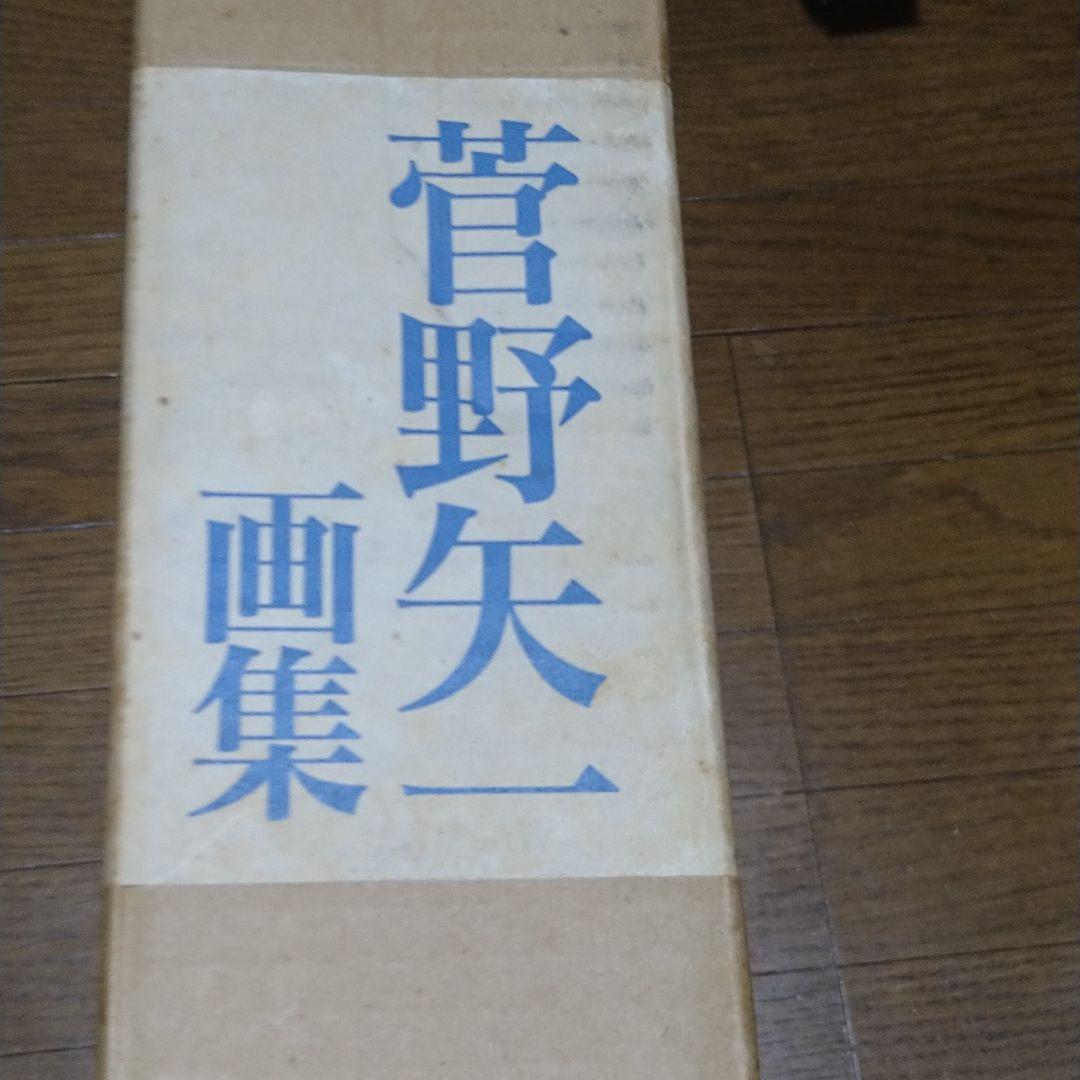 菅野矢一
画集